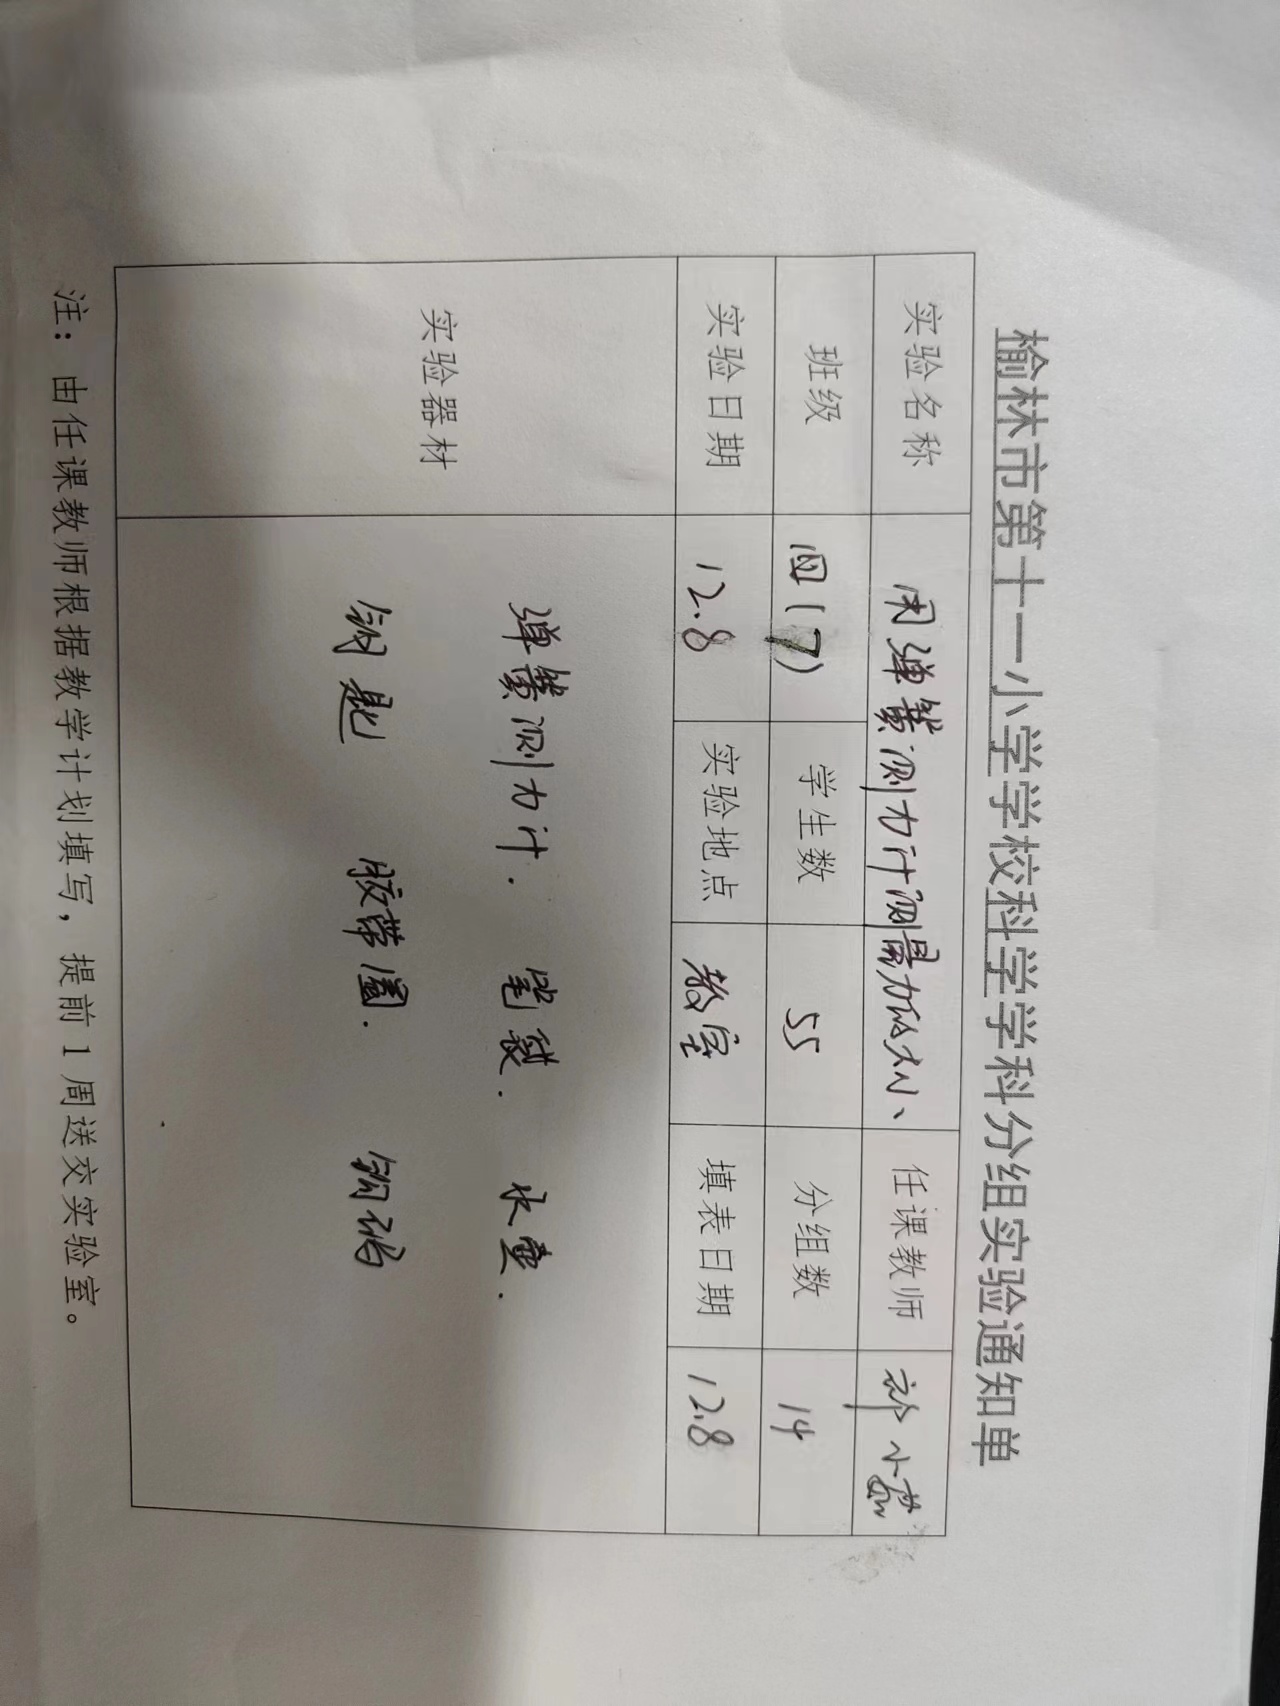 榆林市第十一小学学校科学学科分组实验通知单
实验名称 用弹簧测力计测量力的大小、 任课教师 祁小茹
班级 四(7) 学生数 55 分组数 14
实验日期 12.8 实验地点 教室 填表日期 12.8
实验器材
弹簧测力计. 笔袋. 水壶.
钥匙 胶带圈. 钩码
注：由任课教师根据教学计划填写，提前1周送交实验室。